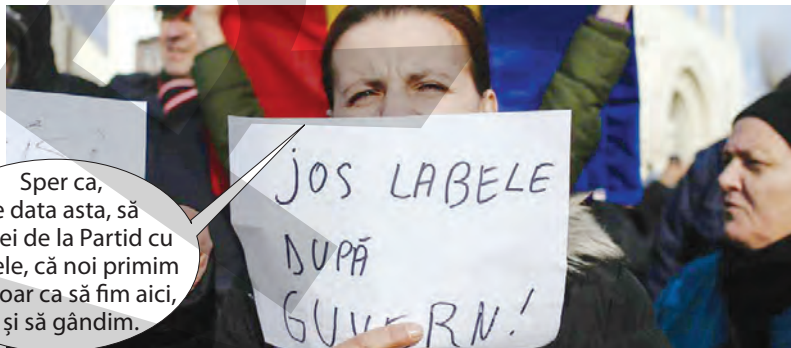 Sper ca,
data asta, să
de la Partid cu
că noi primim
ca să fim aici,
și să gândim.
JOS LABELE
DUPĂ
GUVERN!